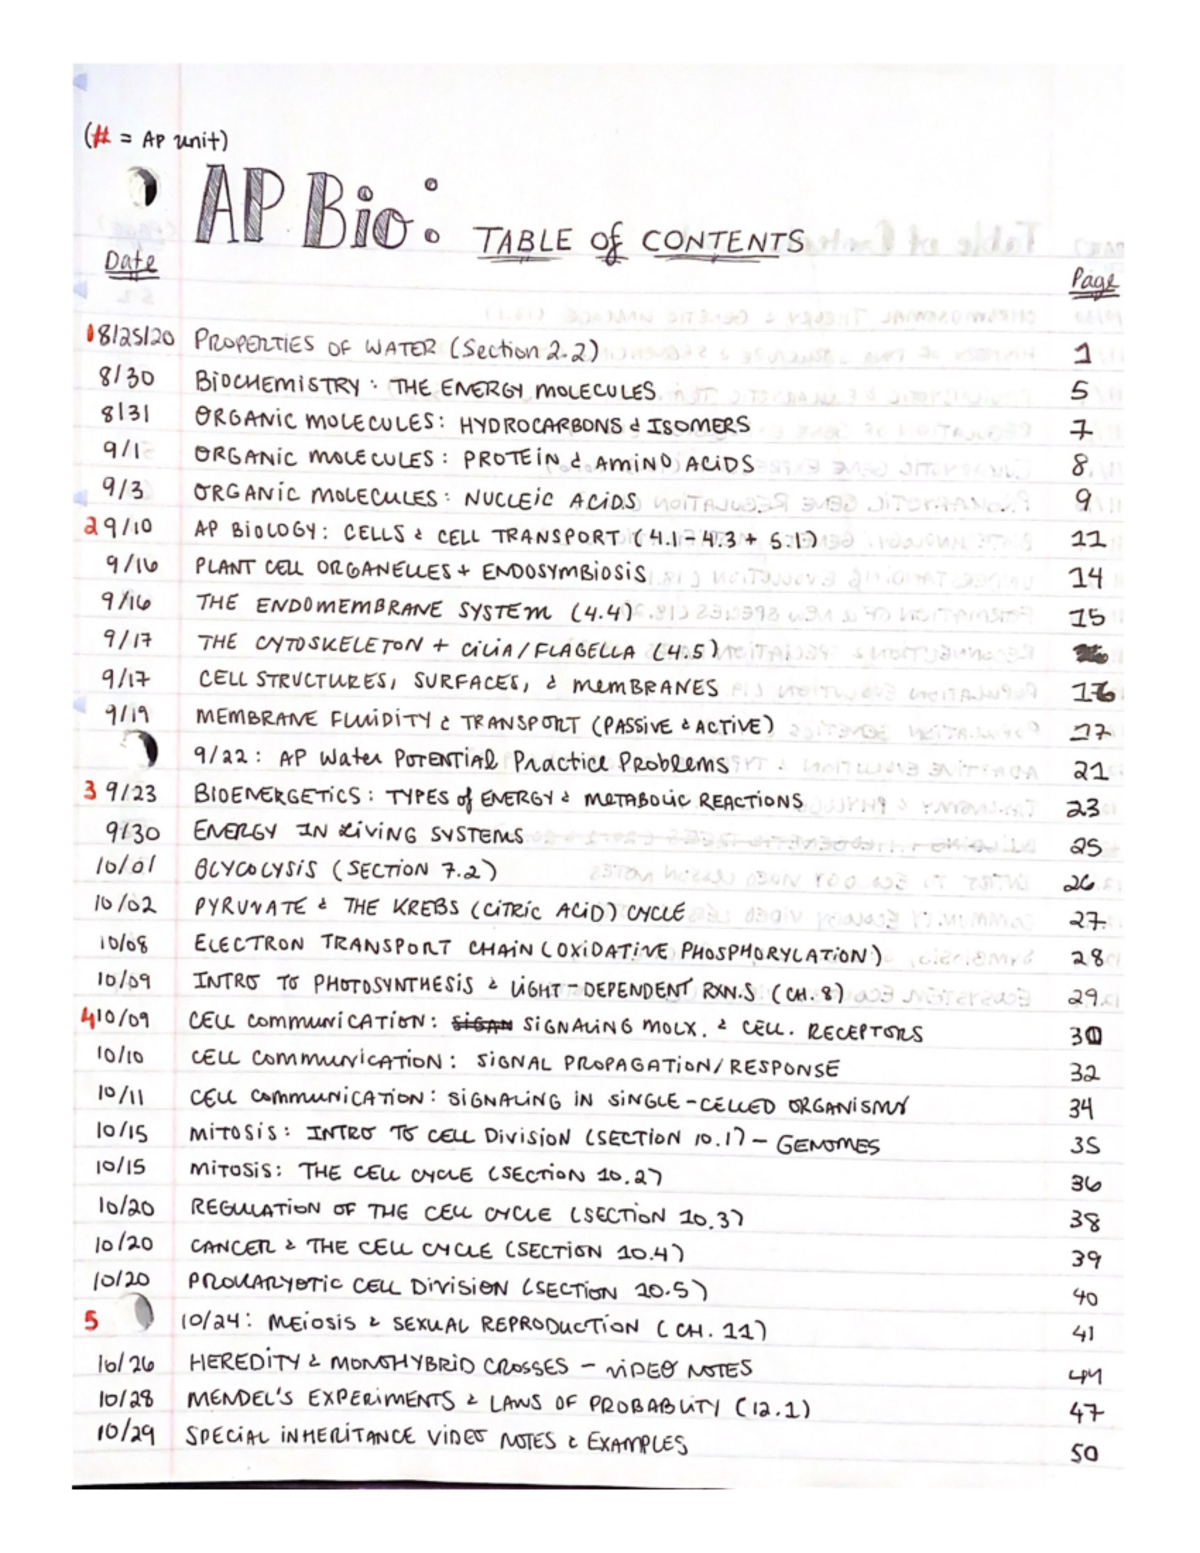 (# = AP unit)
AP Bio: TABLE of CONTENTS
Date Page
1 8/25/20 PROPERTIES OF WATER (Section 2.2) 1
8/30 BIOCHEMISTRY: THE ENERGY MOLECULES 5
8/31 ORGANIC MOLECULES: HYDROCARBONS & ISOMERS 7
9/1 ORGANIC MOLECULES: PROTEIN & AMINO ACIDS 8
9/3 ORGANIC MOLECULES: NUCLEIC ACIDS 9
2 9/10 AP BIOLOGY: CELLS & CELL TRANSPORT (4.1-4.3 + 5.1) 11
9/16 PLANT CELL ORGANELLES + ENDOSYMBIOSIS 14
9/16 THE ENDOMEMBRANE SYSTEM (4.4) 15
9/17 THE CYTOSKELETON + CILIA/FLAGELLA (4.5)
9/17 CELL STRUCTURES, SURFACES, & MEMBRANES 16
9/19 MEMBRANE FLUIDITY & TRANSPORT (PASSIVE & ACTIVE) 17
9/22: AP Water POTENTIAL Practice Problems 21
3 9/23 BIOENERGETICS: TYPES of ENERGY & METABOLIC REACTIONS 23
9/30 ENERGY IN LIVING SYSTEMS 25
10/01 GLYCOLYSIS (SECTION 7.2) 26
10/02 PYRUVATE & THE KREBS (CITRIC ACID) CYCLE 27
10/08 ELECTRON TRANSPORT CHAIN (OXIDATIVE PHOSPHORYLATION) 28
10/09 INTRO TO PHOTOSYNTHESIS & LIGHT-DEPENDENT RXN.S (CH. 8) 29
4 10/09 CELL COMMUNICATION: SIGNALING MOLX. & CELL. RECEPTORS
10/10 CELL COMMUNICATION: SIGNAL PROPAGATION/RESPONSE 32
10/11 CELL COMMUNICATION: SIGNALING IN SINGLE-CELLED ORGANISMS 34
10/15 MITOSIS: INTRO TO CELL DIVISION (SECTION 10.1) - GENOMES 35
10/15 MITOSIS: THE CELL CYCLE (SECTION 10.2) 36
10/20 REGULATION OF THE CELL CYCLE (SECTION 10.3) 38
10/20 CANCER & THE CELL CYCLE (SECTION 10.4) 39
10/20 PROKARYOTIC CELL DIVISION (SECTION 10.5) 40
5 10/24: MEIOSIS & SEXUAL REPRODUCTION (CH. 11) 41
10/26 HEREDITY & MONOHYBRID CROSSES - VIDEO NOTES 44
10/28 MENDEL'S EXPERIMENTS & LAWS OF PROBABLITY (12.1) 47
10/29 SPECIAL INHERITANCE VIDEO NOTES & EXAMPLES 50